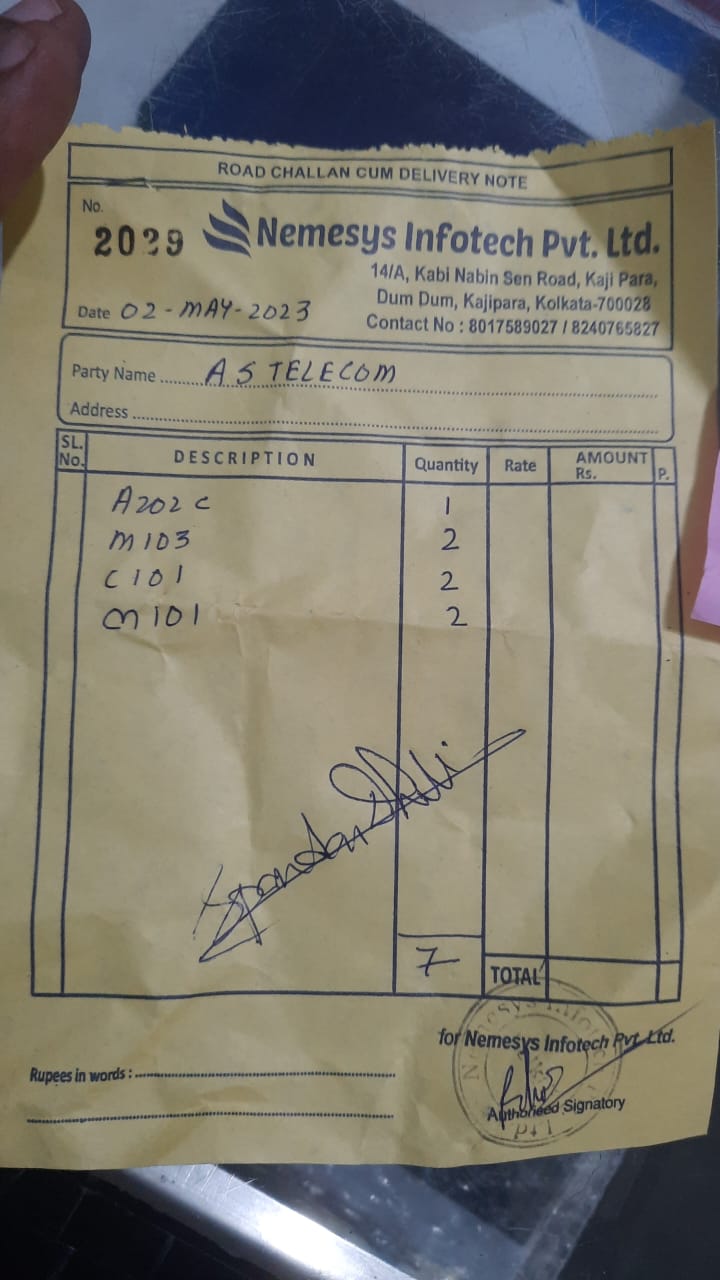 ROAD CHALLAN CUM DELIVERY NOTE
No.
2039
Nemesys Infotech Pvt. Ltd.
14/A, Kabi Nabin Sen Road, Kaji Para,
Dum Dum, Kajipara, Kolkata-700028
Contact No : 8017589027 / 8240765827
Date 02-MAY-2023
Party Name ........ A S TELECOM
Address
SL. No. DESCRIPTION Quantity Rate AMOUNT Rs. P.
A202C 1
M103 2
C101 2
M101 2
7 TOTAL
for Nemesys Infotech Pvt. Ltd.
Rupees in words :
Authorised Signatory